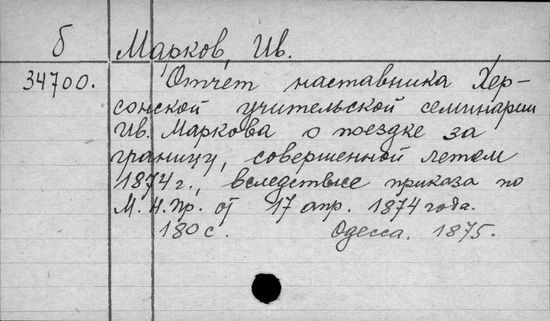 б Марков, Ив.
34700. Отчет наставника Хер-
сонской учительской семинарии
Ив. Маркова о поездке за
границу, совершенной летом
1874 г., вследствие приказа по
М. Н. Пр. от 17 апр. 1874 года.
180 с. Одесса. 1875.